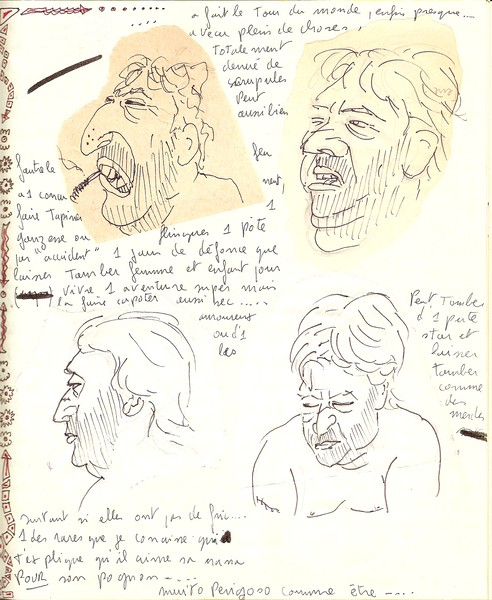 a fait le Tour du monde, enfin presque....
a vécu plein de choses,
Totalement
dénué de
scrupules
Peut
aussi bien
1
faire Tapiner
flinguer 1 pôte
par "accident" 1 jour de défonce que
laisser Tomber femme et enfant pour
vivre 1 aventure super mais
la faire capoter aussi sec.....
amoureux
ou d'1
Peut Tomber
d'1 pute
star et
laisser
tomber
comme
des
merdes
surtout si elles ont pas de fric....
1 des rares que je connaisse qui
t'explique qu'il aime sa nana
POUR son pognon -....
muito Perigoso comme être -....